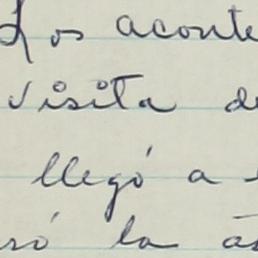 Los aconte
visita de
llegó a
só la